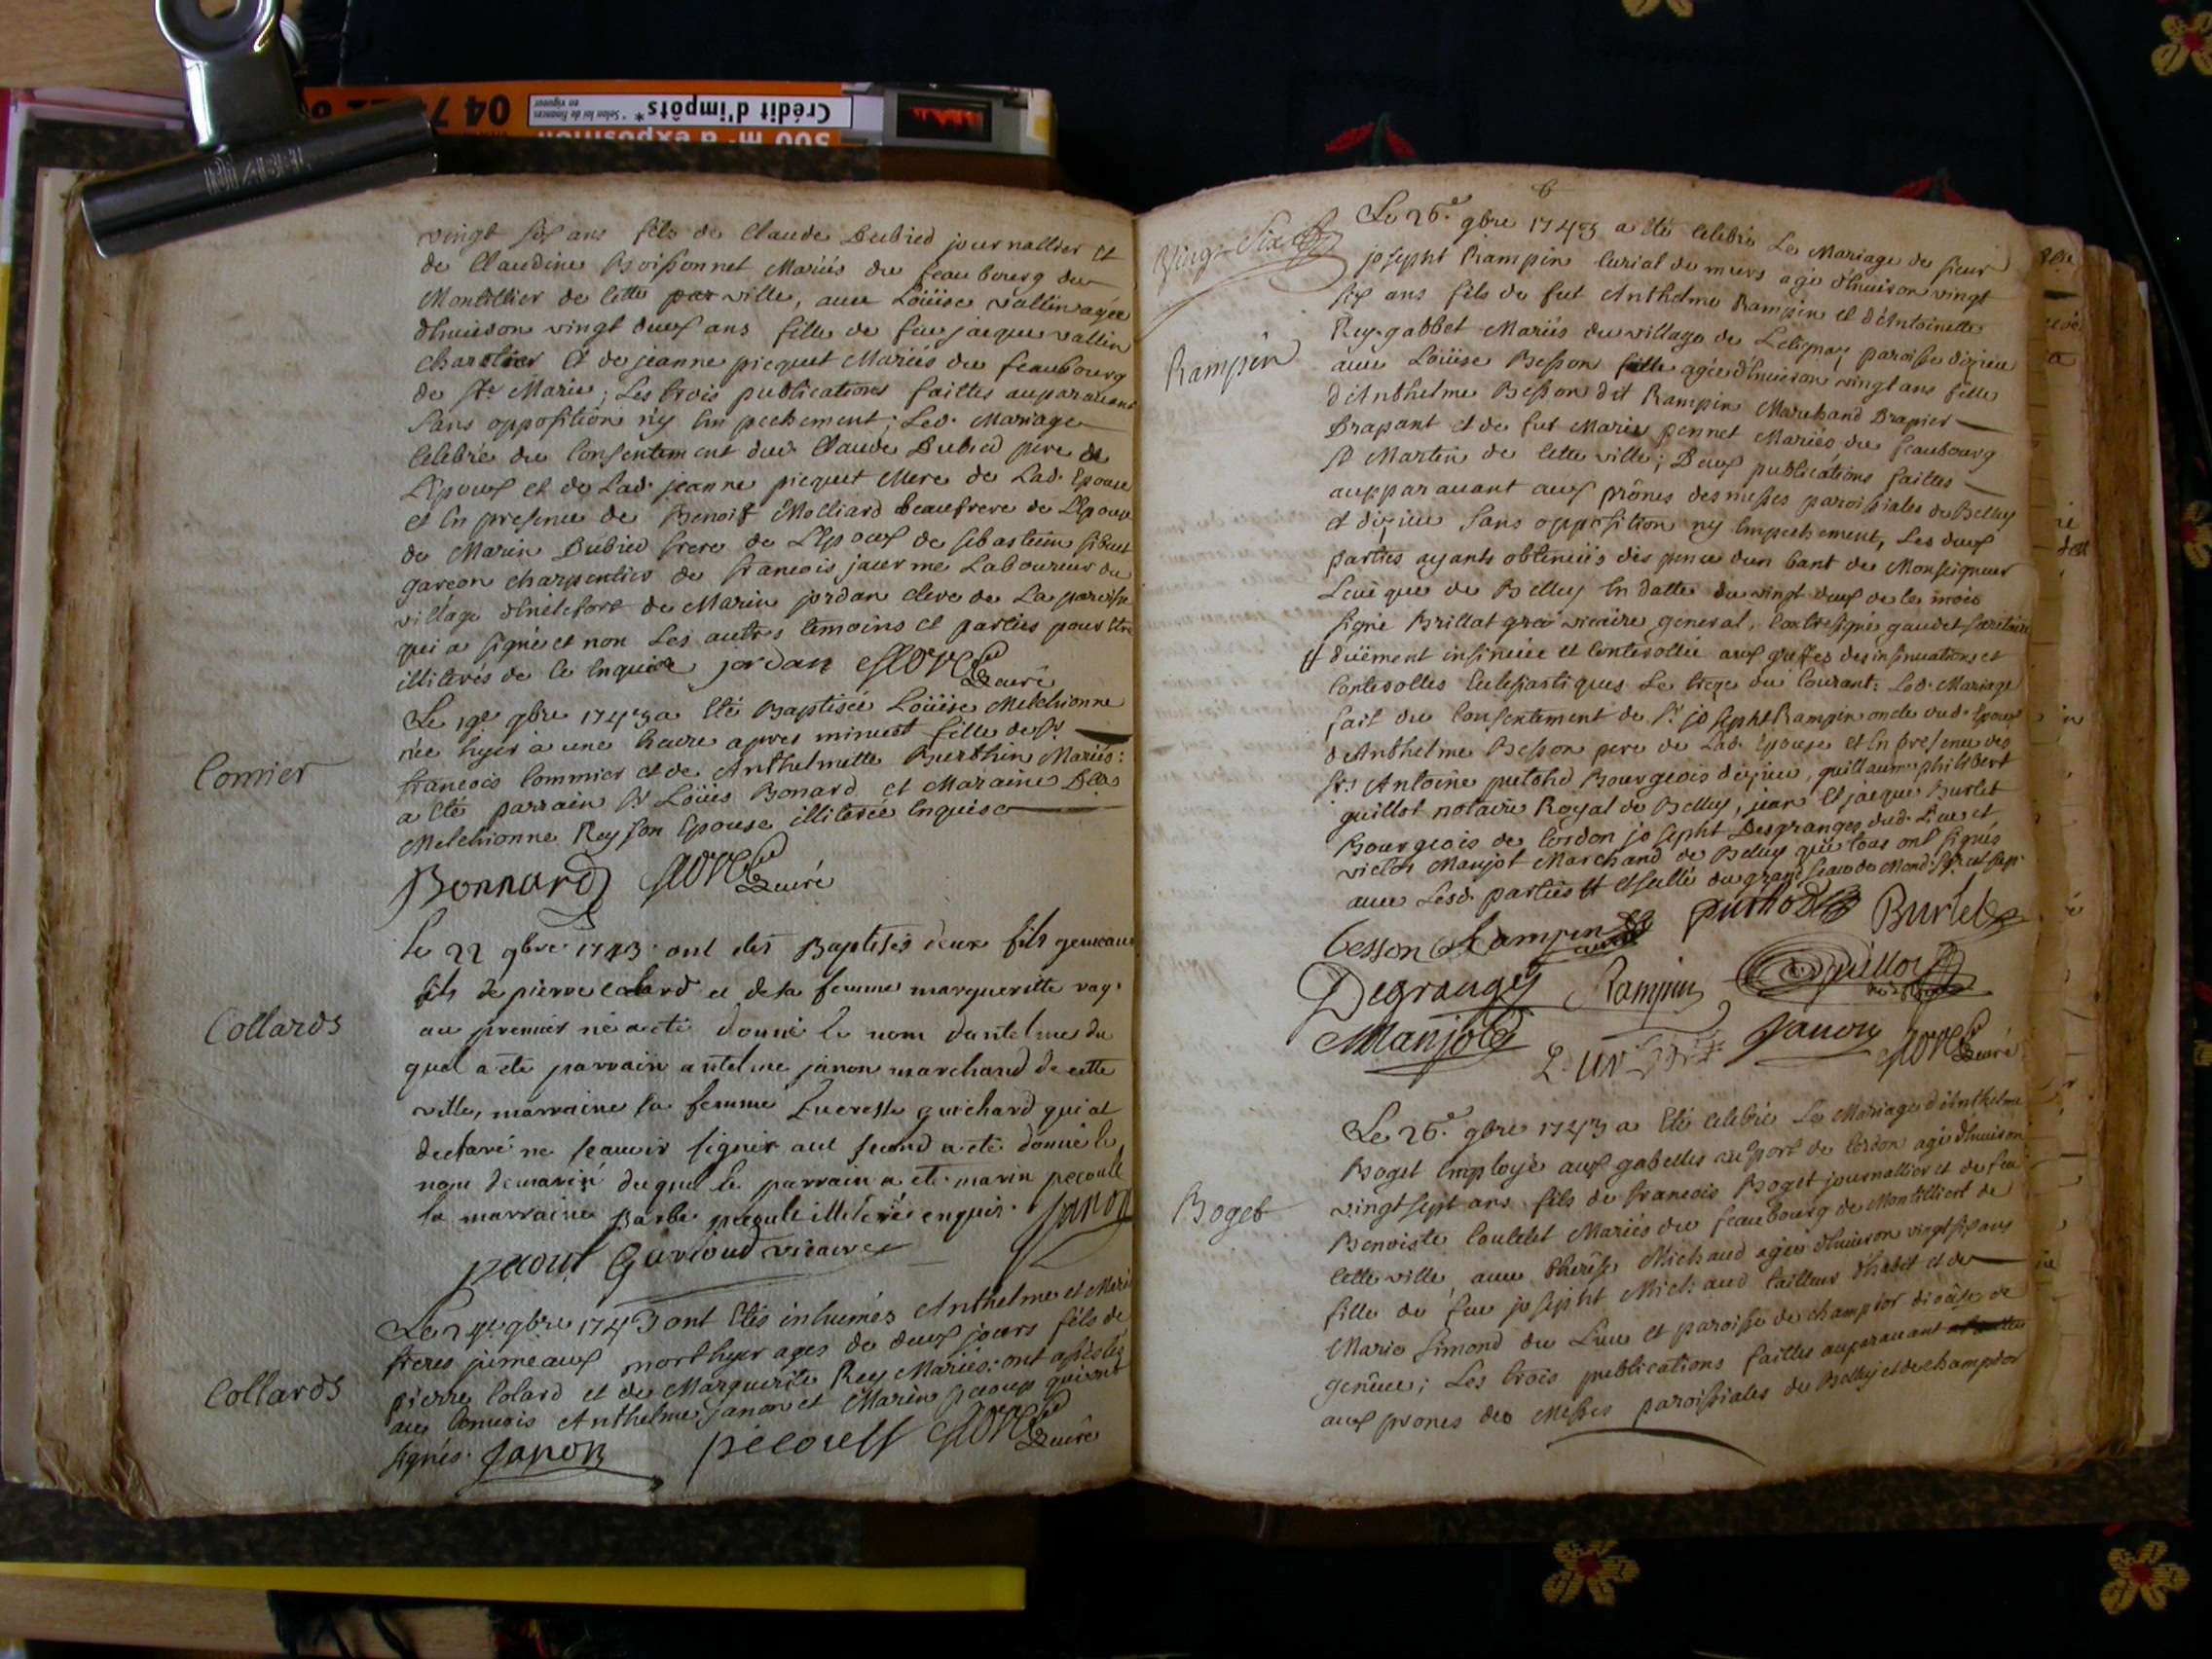 04 7
Crédit d'impôts*
* Selon loi de finances
en vigueur
500 m² d'exposition
vingt six ans fils de Claude Dubied journallier et
de Claudine Boissonnet Mariés du feaubourg du
Montillier de cette ville, avec Loüise vallin agée
d'huison vingt deux ans fille de feu jacque vallin
charolier et de jeanne picquet Mariés du feaubourg
de Ste Marie; Les trois publications faittes auparavant
sans opposition n'y Empechement; Led. Mariage
Celebré du Consentement dud. Claude Dubied pere de
L'Epoux et de Lad. jeanne picquet Mere de Lad. Epouse
et En presence de Benoist Molliard beaufrere de L'Epoux
de Marin Dubied frere de L'Epoux de sebastien sibuet
garçon charpentier de francois jacerme Laboureur du
village de Marin jordan clerc de La paroisse
qui a signé et non Les autres temoins et parties pour être
illiterés de ce Enquis jordan
curé
Comier
Le 19e 9bre 1743 a Eté Baptisée Loüise Melchionne
née hyer à une heure apres minuit fille de Sr
francois Commier et de Anthelmette Burthin Mariés:
a Eté parrain Sr Loüis Bonard et Maraine Dlle
Melchionne Rey son Epouse illiterée Enquise
Bonnard
curé
Collards
le 22 9bre 1743 ont etés Baptisés deux fils gemeaux
fils de pierre colard et de sa femme marguerite ray.
au premier né a eté donné le nom dantelme du
quel a eté parrain antelme janon marchand de cette
ville, marraine sa femme Lucresse guichard qui at
declaré ne scauoir signer aut second a eté donné le
nom de marin duquel le parrain a eté marin pecoult
la marraine Barbe pecoult illiterée enquis. janon
pecoul Gavioud vicaire
Collards
Le 24e 9bre 1743 ont Etés inhumés Anthelme et Marin
freres jumeaux morthyer agés de deux jours fils de
pierre Colard et de Marguerite Rey Mariés: ont assistés
au Convois Anthelme janon et Marin pecoup qui ont
signés. Janon pecoult
curé
6
Vingt Six
Rampin
Le 26.e 9bre 1743 a Eté Celebré Le Mariage de sieur
josepht Rampin Curial de murs agé d'huison vingt
six ans fils de fut Anthelme Rampin et d'Antoinette
Rey-gabbet Mariés du village de paroisse dizieu
avec Loüise Besson fille agée d'huison vingt ans fille
d'Anthelme Besson dit Rampin Marchand Drapier
Drapant et de fut Marie pennet Mariés du feaubourg
St Martin de cette ville; Deux publications faittes
aupparavant aux prônes des messes paroissiales de Belley
et dizieu sans opposition n'y Empechement, Les deux
parties ayants obtenüés dispence dun bant de Monseigneur
Leuéque de Belley En datte du vingt deux de ce mois
signé Brillat vicaire general, Contresigné gaudet secretaire
duëment insinüée et Controllée aux greffes des insinuations et
Controlles Eclesiastiques Le treze du Courant: Led. Mariage
fait du Consentement de Sr josepht Rampin oncle dud. Epoux
d'Anthelme Besson pere de Lad. Epouse et En presence des
Srs Antoine puthod Bourgeois dizieu, guillaume philibert
guillot notaire Royal de Belley, jean et jacque Burlet
Bourgeois de Cordon josepht Desgranges dud. Lieu et
victor Manjot Marchand de Belley qui tous ont signés
avec Lesd. parties
besson Rampin puthod Burlet
Degranges Rampin Guillot
Manjot Janon
curé
Boget
Le 26.e 9bre 1743 a Eté Celebré Le Mariage d'Anthelme
Boget Employé aux gabelles au port de Cordon agé d'huison
vingt sept ans fils de francois Boget journallier et de feu
Benoiste Coulelet Mariés du feaubourg de Montillier de
cette ville, avec therêse Michaud agée d'huison vingt six ans
fille de feu josepht Michaud tailleur d'habet et de
Marie Simond du Lieu et paroisse de champdor diocêse de
genéue; Les trois publications faittes auparavant
aux prones des Messes paroissiales de Belley et de champdor